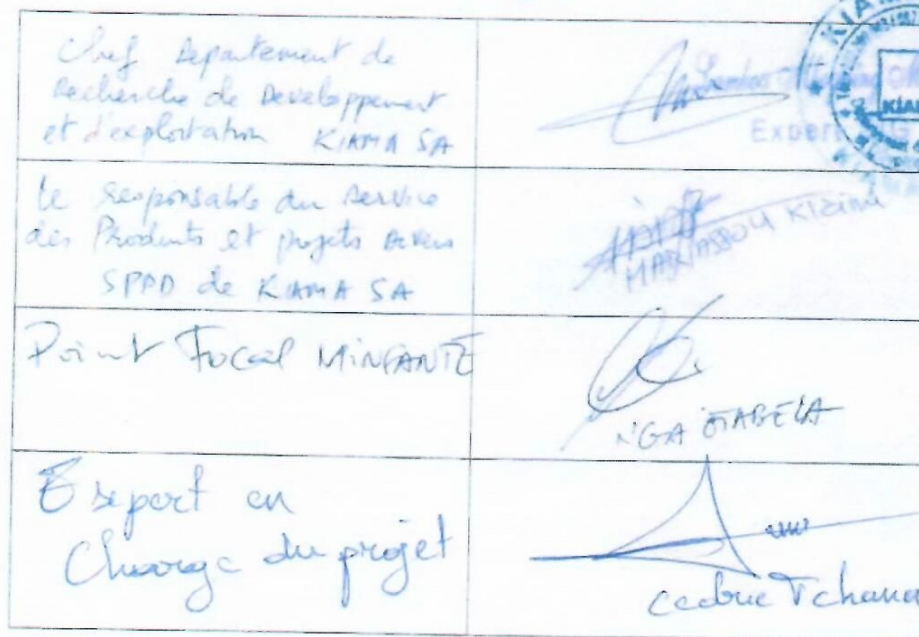 Chef Departement de
Recherche de Developpement
et d'exploitation KIAMA SA
Expert
KIAM
Le responsable du Service
des Produits et projets Divers
SPPD de KIAMA SA
Point Focal MINSANTE
NGA ETABELA
Expert en
Charge du projet
Cedric Tchana